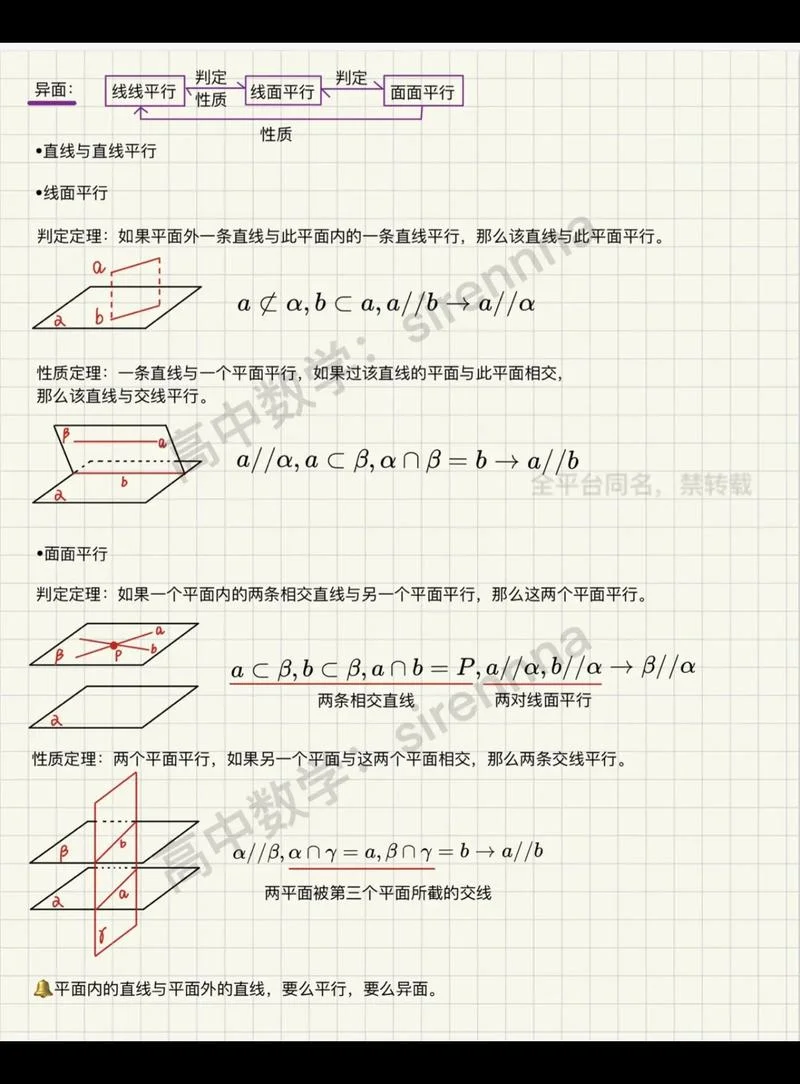 异面：
线线平行 判定 性质 线面平行 判定 面面平行
性质
•直线与直线平行
•线面平行
判定定理：如果平面外一条直线与此平面内的一条直线平行，那么该直线与此平面平行。
a
b
α
a ⊄ α, b ⊂ a, a//b → a//α
性质定理：一条直线与一个平面平行，如果过该直线的平面与此平面相交，
那么该直线与交线平行。
β
a
b
α
a//α, a ⊂ β, α ∩ β = b → a//b
全平台同名，禁转载
•面面平行
判定定理：如果一个平面内的两条相交直线与另一个平面平行，那么这两个平面平行。
a
β P b
α
a ⊂ β, b ⊂ β, a ∩ b = P, a//α, b//α → β//α
两条相交直线 两对线面平行
性质定理：两个平面平行，如果另一个平面与这两个平面相交，那么两条交线平行。
β b
α a
γ
α//β, α ∩ γ = a, β ∩ γ = b → a//b
两平面被第三个平面所截的交线
平面内的直线与平面外的直线，要么平行，要么异面。
高中数学：sirennna
高中数学：sirennna